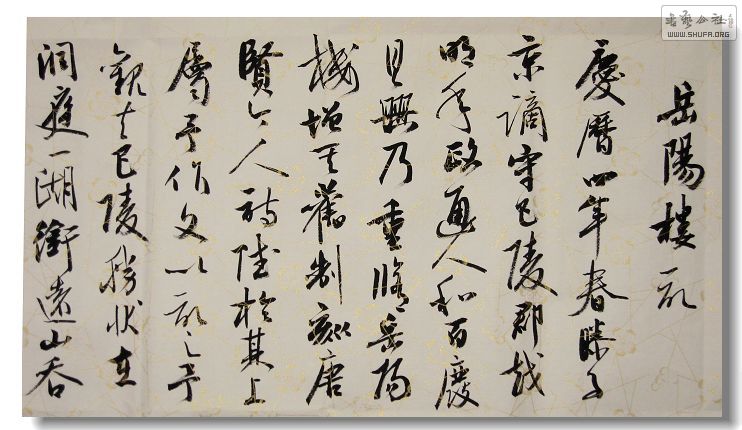 岳陽樓記
慶曆四年春滕子
京謫守巴陵郡越
明年政通人和百廢
具興乃重脩岳陽
樓增其舊制刻唐
賢今人詩賦於其上
屬予作文以記之予
觀夫巴陵勝狀在
洞庭一湖銜遠山吞
書藝公社
WWW.SHUFA.ORG